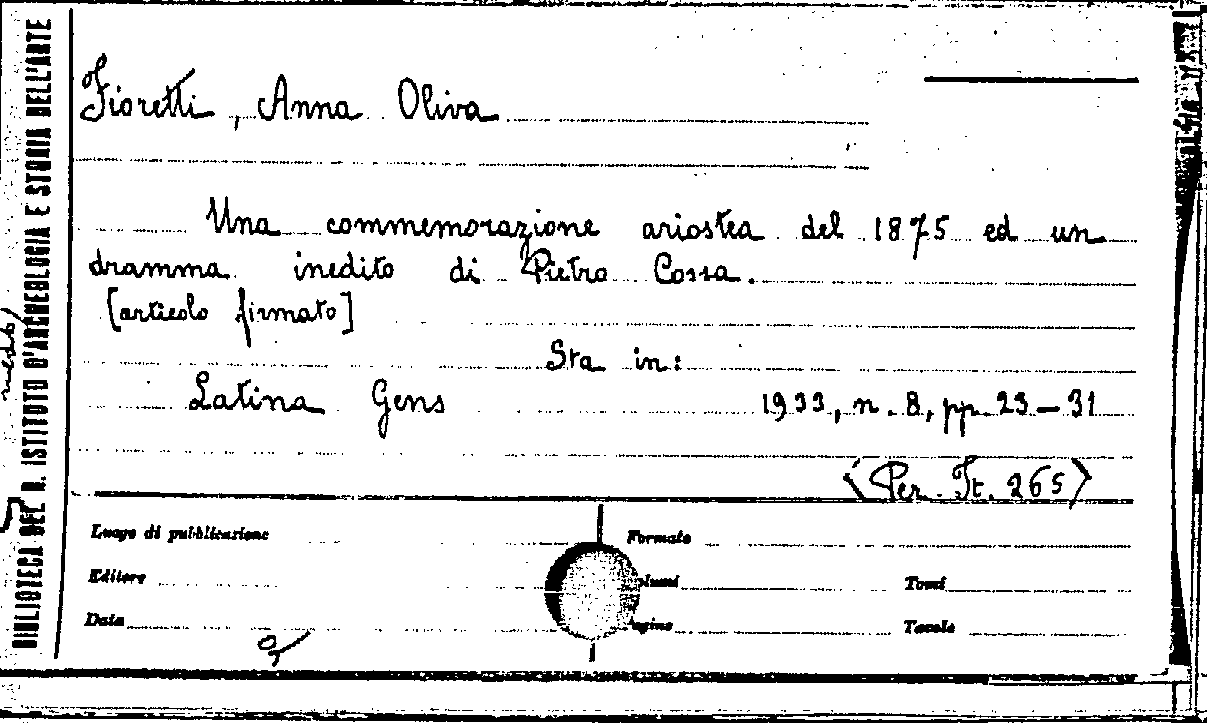 Fioretti, Anna Oliva
Una commemorazione ariostea del 1875 ed un
dramma inedito di Pietro Cossa.
[articolo firmato]
Sta in:
Latina Gens 1933, n. 8, pp. 23-31
<Per. It. 265>
Luogo di pubblicazione
Formato
Editore
Tomi
Data
Tavole
BIBLIOTECA DEL R. ISTITUTO D'ARCHEOLOGIA E STORIA DELL'ARTE